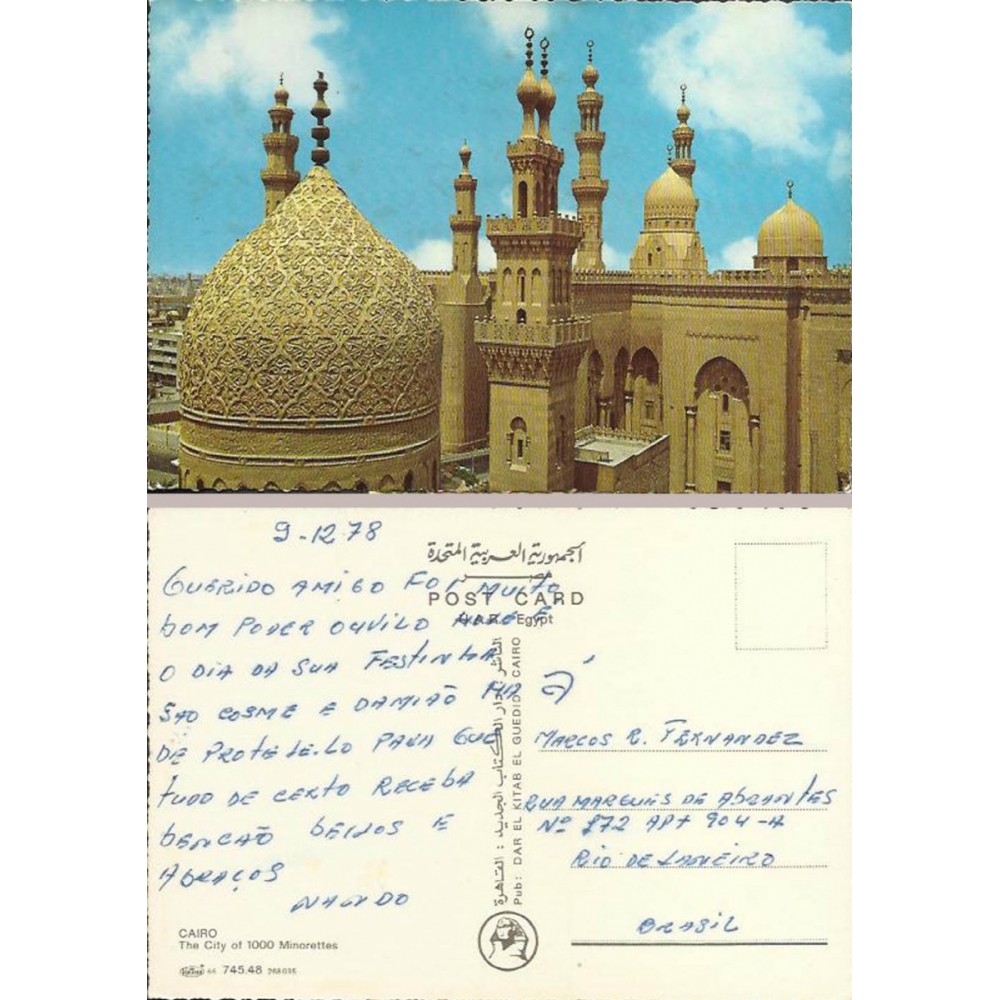 9-12-78
QUERIDO AMIGO FOI MUITO
BOM PODER OUVILO HOJE É
O DIA DA SUA FESTINHA
SAO COSME E DAMIÃO HÁ
DE PROTEJE-LO PARA QUE
TUDO DE CERTO RECEBA
BENCÃO BEIJOS E
ABRAÇOS
NANDO
CAIRO
The City of 1000 Minorettes
66 745.48 268035
الجمهورية العربية المتحدة
مصر
POST CARD
U.A.R. Egypt
الناشر : دار الكتاب الجديد : القاهرة
Pub: DAR EL KITAB EL GUEDID : CAIRO
MARCOS R. FERNANDEZ
RUA MARQUÊS DE ABRANTES
Nº 172 APT 904-A
RIO DE JANEIRO
BRASIL